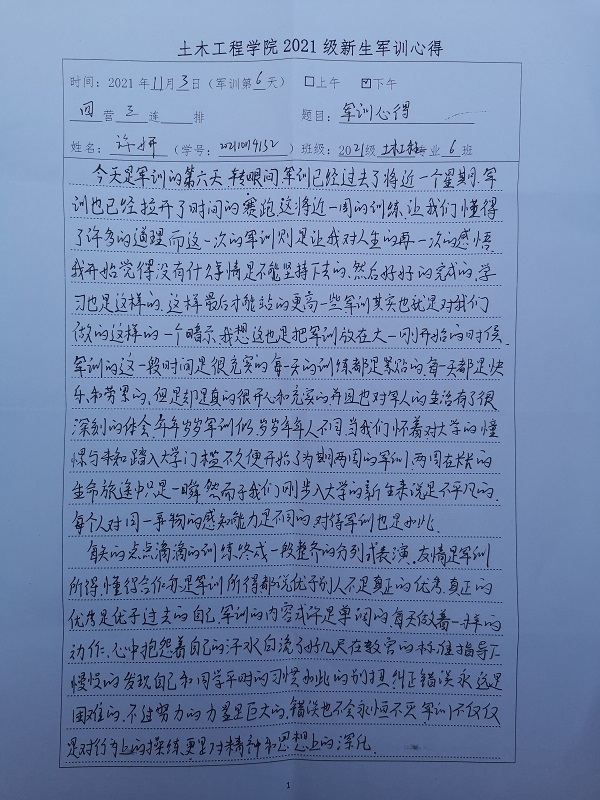 土木工程学院2021级新生军训心得
时间：2021年11月3日（军训第6天） □上午 ☑下午
四营三连 排 题目：军训心得
姓名：许妍（学号：20210019132）班级：2021级土木工程专业6班
今天是军训的第六天,转眼间,军训已经过去了将近一个星期.军
训也已经拉开了时间的赛跑.这将近一周的训练,让我们懂得
了许多的道理,而这一次的军训则是让我对人生的再一次的感悟.
我开始觉得没有什么事情是不能坚持下去的.然后好好的完成的.学
习也是这样的.这样最后才能站的更高一些军训其实也就是对我们
做的这样的一个暗示.我想这也是把军训放在大一刚开始的时候.
军训的这一段时间是很充实的每一天的训练都是累贴的每一天都是快
乐和劳累的.但是却是真的很开心和充实的并且也对军人的生活有了很
深刻的体会.年年岁岁军训似,岁岁年年人不同.当我们怀着对大学的憧
憬与未知踏入大学门槛不久便开始了为期两周的军训.两周在太长的
生命旅途中只是一瞬.然而于我们刚步入大学的新生来说是不平凡的.
每个人对同一事物的感知能力是不同的.对待军训也是如此.
每天的点点滴滴的训练,终成一段整齐的分列式表演.友情是军训
所得,懂得合作亦是军训所得都说优于别人不是真正的优秀.真正的
优秀是优于过去的自己.军训的内容或许是单调的每天做着一样的
动作.心中抱怨着自己的汗水白流了好几尺在教官的标准指导下
慢慢的发现自己和同学平时的习惯如此的别扭.纠正错误永远是
困难的.不过努力的力量是巨大的.错误也不会永恒不灭.军训不仅仅
是对行为上的操练,更是对精神和思想上的深化.
1